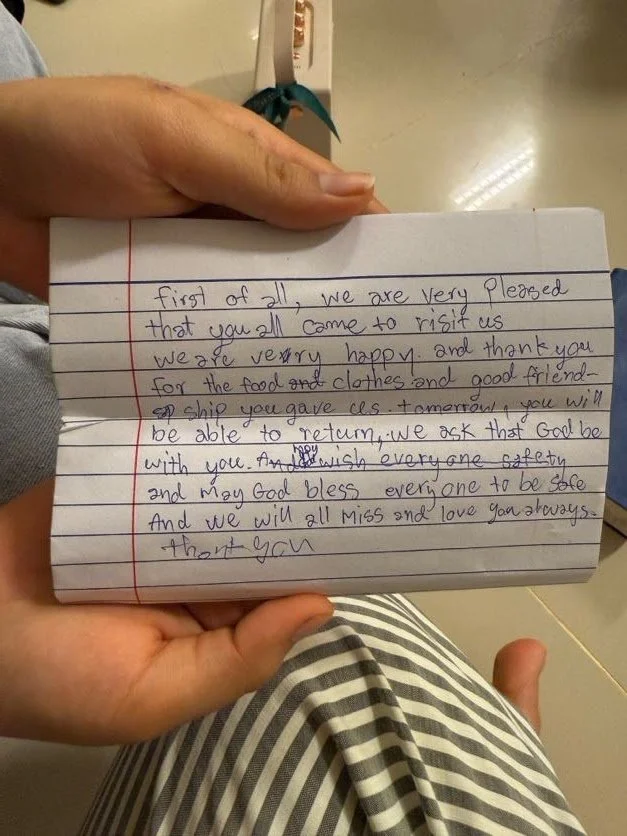 first of all, we are very Pleased
that you all came to risit us
we are very happy. and thank you
for the food and clothes and good friend-
ship you gave us. tomorrow, you will
be able to return, we ask that God be
with you. And wish everyone safety
and may God bless everyone to be safe
And we will all Miss and love you always.
thank you